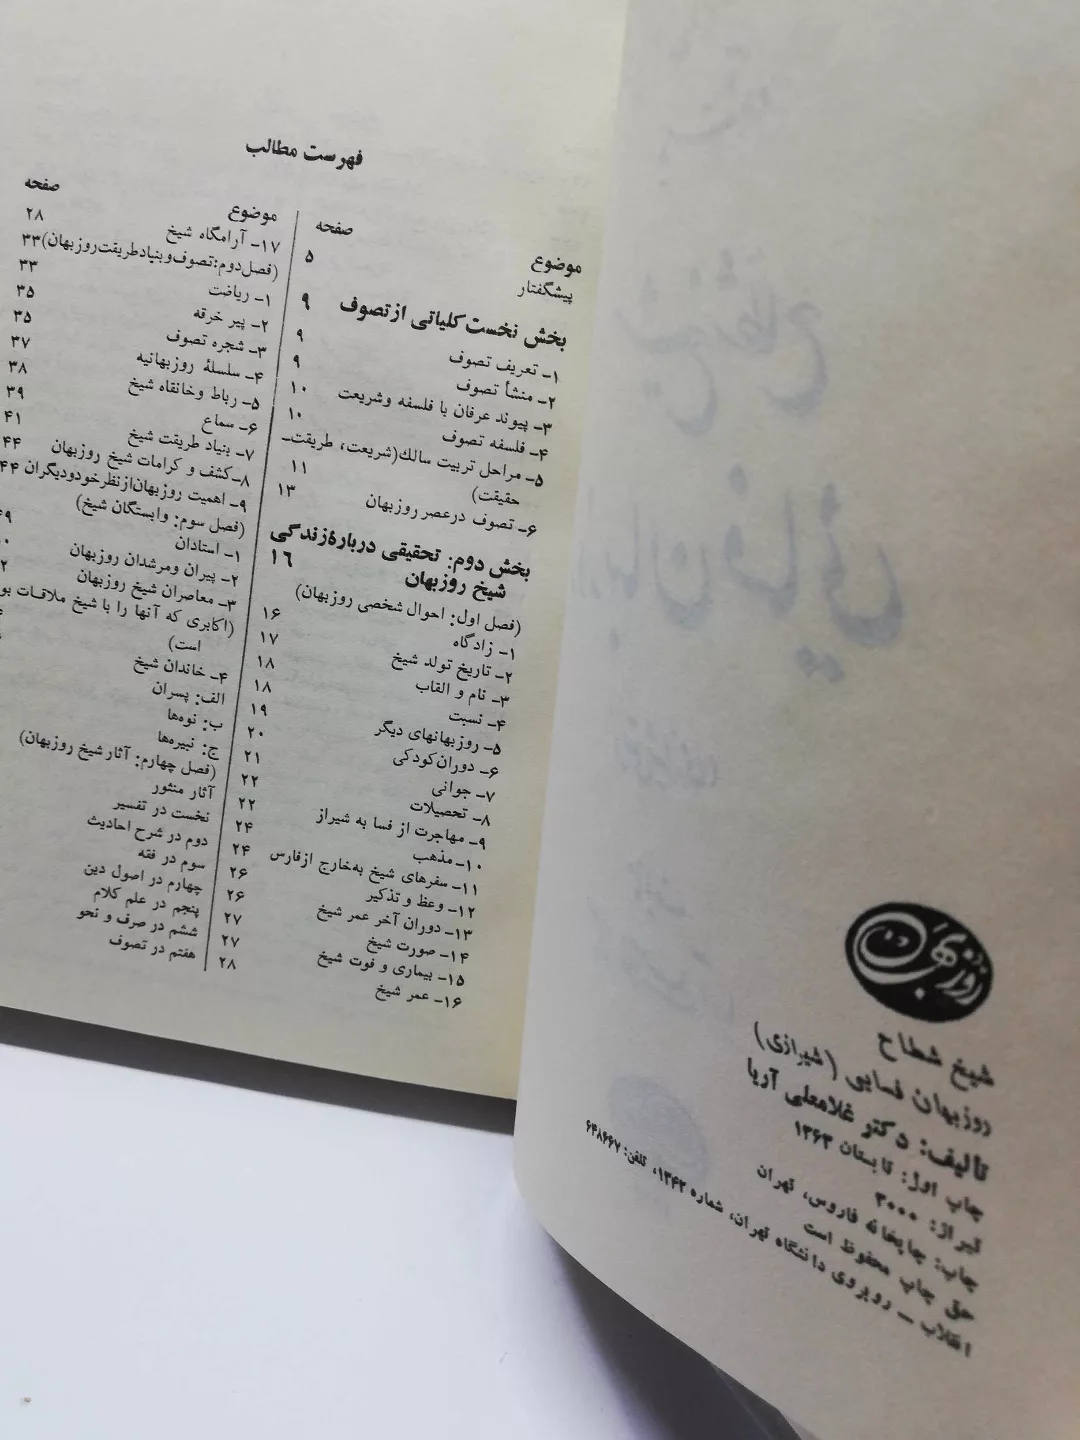 روزبهان
شیخ شطاح
روزبهان فسایی (شیرازی)
تألیف: دکتر غلامعلی آریا
چاپ اول: تابستان ۱۳۶۳
تیراژ: ۳۰۰۰
چاپ: چاپخانه فاروس، تهران
حق چاپ محفوظ است
انقلاب ــ روبروی دانشگاه تهران، شماره ۱۳۴۲، تلفن: ۶۴۸۶۶۷
فهرست مطالب
موضوع صفحه
پیشگفتار ۵
بخش نخست کلیاتی از تصوف ۹
۱ــ تعریف تصوف ۹
۲ــ منشأ تصوف ۹
۳ــ پیوند عرفان با فلسفه وشریعت ۱۰
۴ــ فلسفه تصوف ۱۰
۵ــ مراحل تربیت سالك(شریعت، طریقت‌ــ
حقیقت) ۱۱
۶ــ تصوف درعصر روزبهان ۱۳
بخش دوم: تحقیقی دربارهٔ زندگی
شیخ روزبهان ۱۶
(فصل اول: احوال شخصی روزبهان) ۱۶
۱ــ زادگاه ۱۷
۲ــ تاریخ تولد شیخ ۱۸
۳ــ نام و القاب ۱۸
۴ــ نسبت ۱۹
۵ــ روزبهانهای دیگر ۲۰
۶ــ دوران‌کودکی ۲۱
۷ــ جوانی ۲۲
۸ــ تحصیلات ۲۲
۹ــ مهاجرت از فسا به شیراز ۲۴
۱۰ــ مذهب ۲۴
۱۱ــ سفرهای شیخ به‌خارج ازفارس ۲۶
۱۲ــ وعظ و تذکیر ۲۶
۱۳ــ دوران آخر عمر شیخ ۲۷
۱۴ــ صورت شیخ ۲۷
۱۵ــ بیماری و فوت شیخ ۲۸
۱۶ــ عمر شیخ
موضوع صفحه
۱۷ــ آرامگاه شیخ ۲۸
(فصل‌دوم: تصوف وبنیادطریقت‌روزبهان) ۳۳
۱ــ ریاضت ۳۳
۲ــ پیر خرقه ۳۵
۳ــ شجره تصوف ۳۵
۴ــ سلسلهٔ روزبهانیه ۳۷
۵ــ رباط وخانقاه شیخ ۳۸
۶ــ سماع ۳۹
۷ــ بنیاد طریقت شیخ ۴۱
۸ــ کشف و کرامات شیخ روزبهان ۴۴
۹ــ اهمیت روزبهان‌ازنظرخودودیگران ۴۴
(فصل سوم: وابستگان شیخ)
۱ــ استادان
۲ــ پیران ومرشدان روزبهان
۳ــ معاصران شیخ روزبهان
(اکابری که آنها را با شیخ ملاقات
است)
۴ــ خاندان شیخ
الف: پسران
ب: نوه‌ها
ج: نبیره‌ها
(فصل چهارم: آثار شیخ روزبهان)
آثار منثور
نخست در تفسیر
دوم در شرح احادیث
سوم در فقه
چهارم در اصول دین
پنجم در علم کلام
ششم در صرف و نحو
هفتم در تصوف